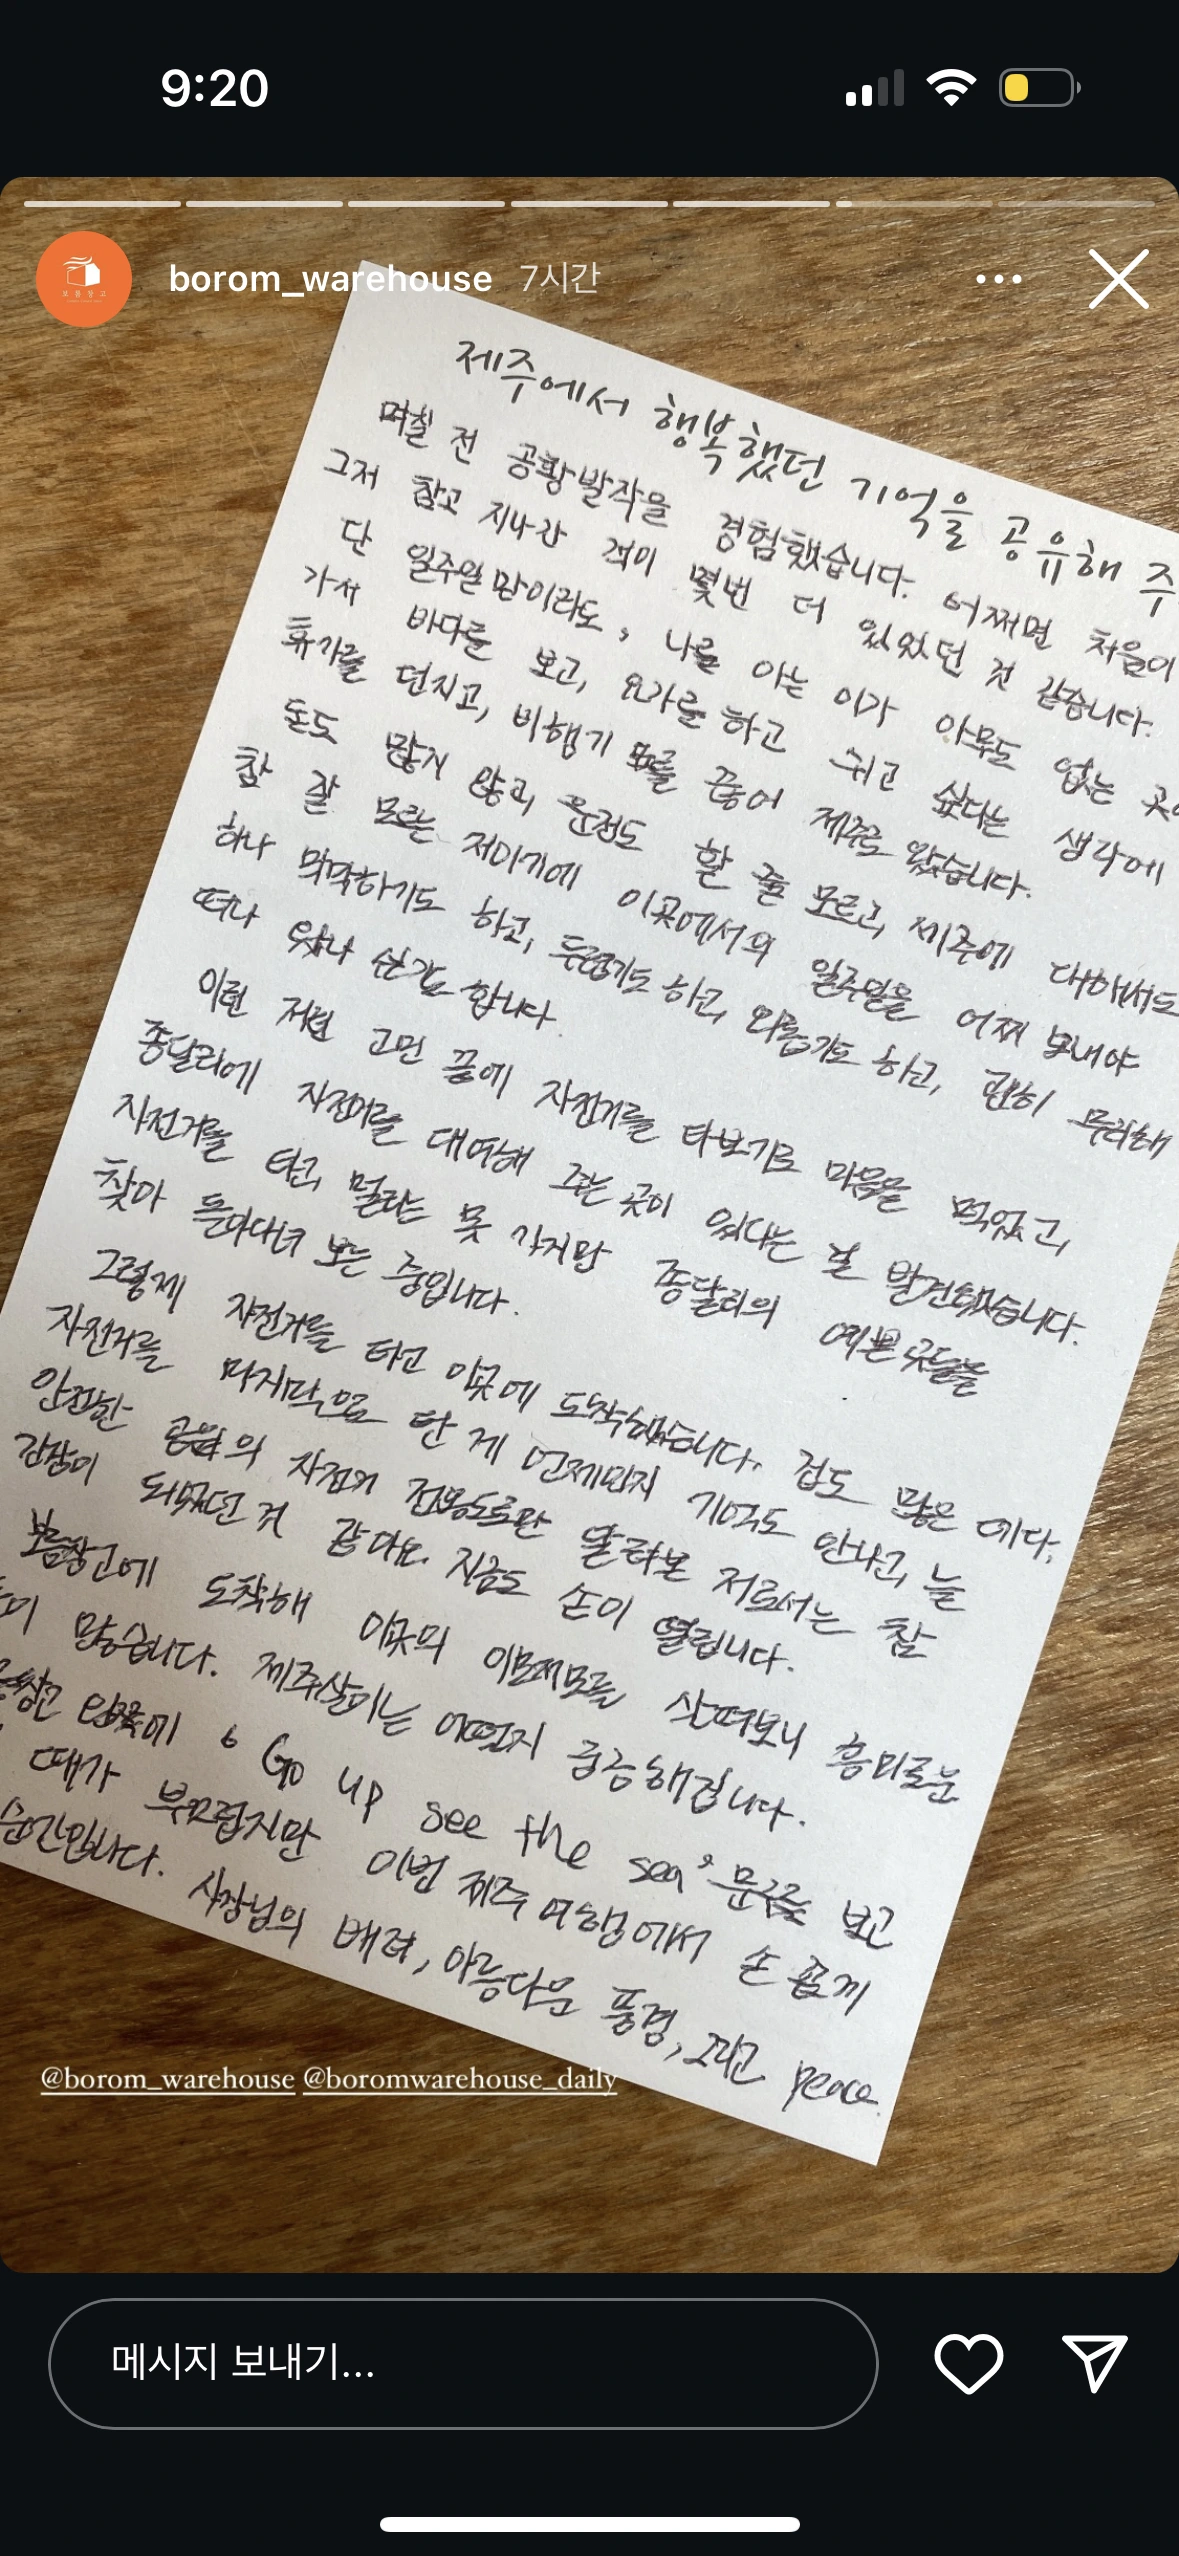 9:20
borom_warehouse 7시간
보롬창고
제주에서 행복했던 기억을 공유해 주
며칠 전 공황발작을 경험했습니다. 어쩌면 처음이
그저 참고 지나간 적이 몇번 더 있었던 것 같습니다.
단 일주일 만이라도, 나를 아는 이가 아무도 없는 곳에
가서 바다를 보고, 요가를 하고 쉬고 싶다는 생각에
휴가를 던지고, 비행기 표를 끊어 제주로 왔습니다.
돈도 많지 않고, 운전도 할 줄 모르고, 제주에 대해서도
참 잘 모르는 저이기에 이곳에서의 일주일을 어찌 보내야
하나 막막하기도 하고, 두렵기도 하고, 외롭기도 하고, 괜히 무리해
떠나 왔나 싶기도 합니다.
이런 저런 고민 끝에 자전거를 타보기로 마음을 먹었고,
종달리에 자전거를 대여해 주는 곳이 있다는 걸 발견했습니다.
자전거를 타고, 멀리는 못 가지만 종달리의 예쁜 곳들을
찾아 돌아다녀 보는 중입니다.
그렇게 자전거를 타고 이곳에 도착했습니다. 겁도 많은 데다,
자전거를 마지막으로 탄 게 언제인지 기억도 안나고, 늘
안전한 공원의 자전거 전용도로만 달려본 저로서는 참
긴장이 되었던 것 같아요. 지금도 손이 떨립니다.
보롬창고에 도착해 이곳의 이모저모를 살펴보니 흥미로운
이 많습니다. 제주살이는 어떨지 궁금해집니다.
입구에 ‘Go up see the sea’ 문구를 보고
때가 부끄럽지만 이번 제주 여행에서 손 꼽게
순간입니다. 사장님의 배려, 아름다운 풍경, 그리고 peace.
@borom_warehouse @boromwarehouse_daily
메시지 보내기...